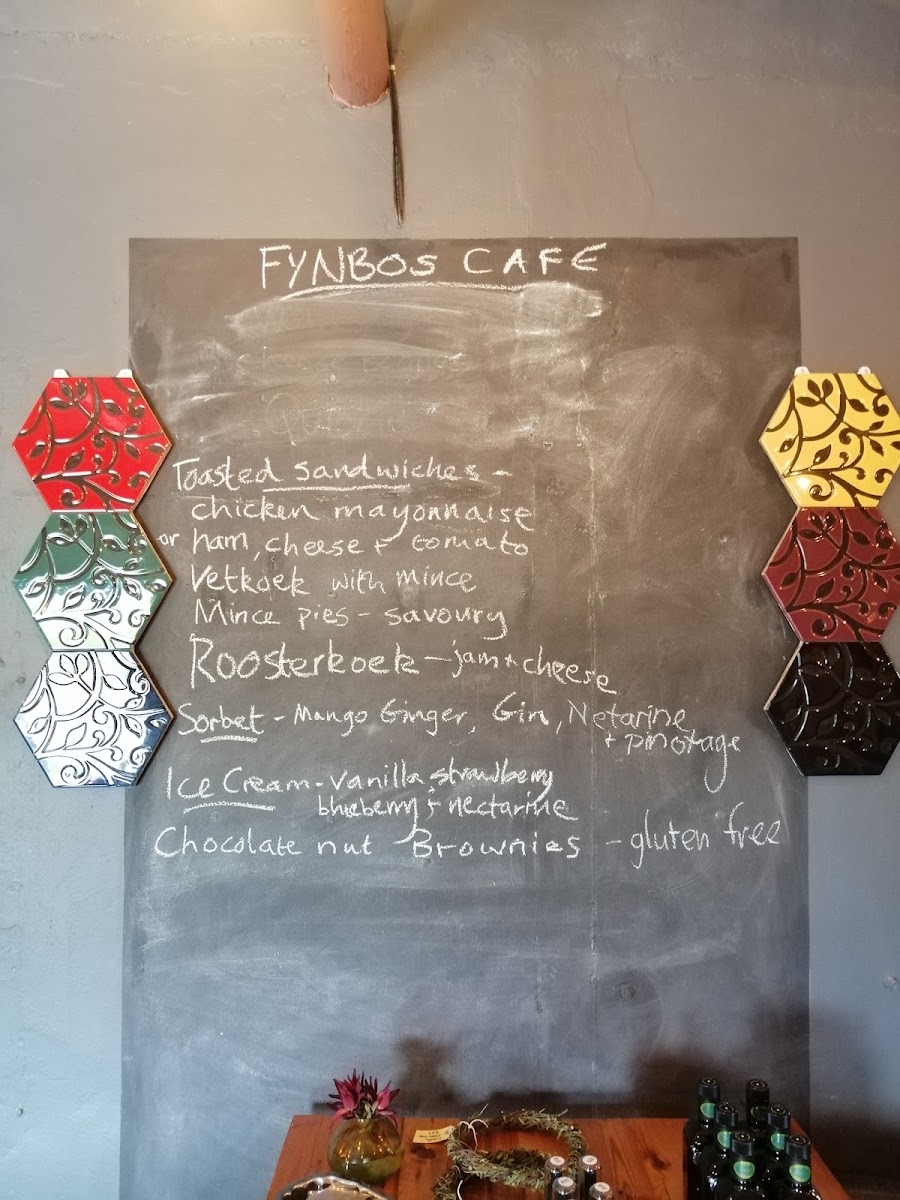 FYNBOS CAFE
Toasted sandwiches -
chicken mayonnaise
or ham, cheese + tomato
Vetkoek with mince
Mince pies - savoury
Roosterkoek - jam + cheese
Sorbet - Mango Ginger, Gin, Netarine
+ pinotage
Ice Cream - vanilla strawberry
blueberry + nectarine
Chocolate nut Brownies - gluten free